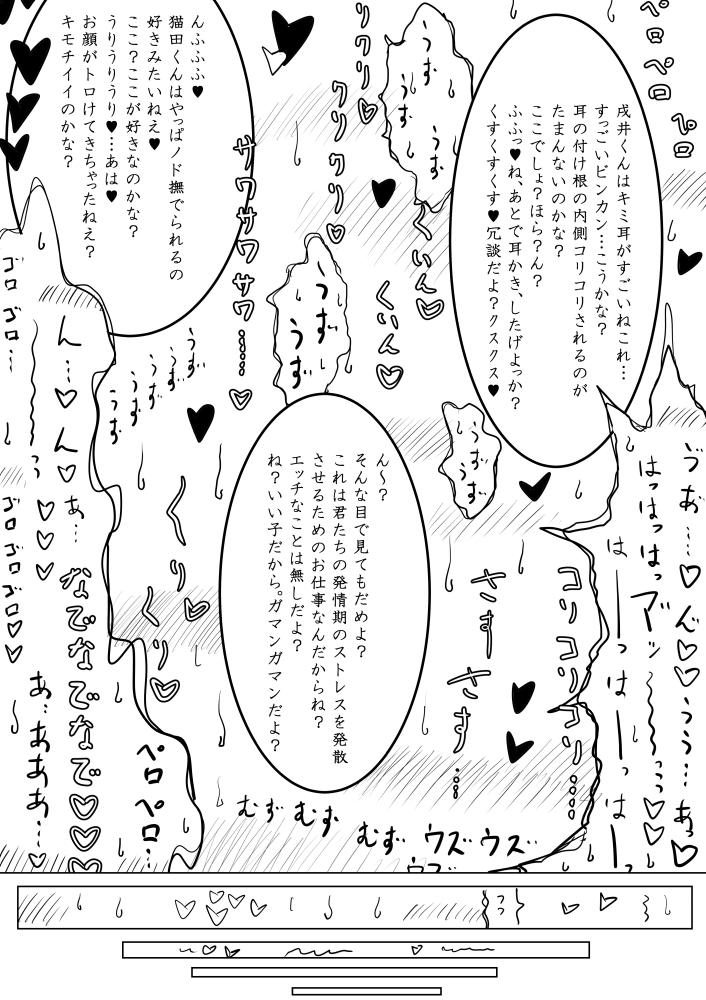 戌井くんはキミ耳がすごいねこれ…
すっごいビンカン…こうかな?
耳の付け根の内側コリコリされるのが
たまんないのかな?
ここでしょ?ほら?ん?
ふふっ♥ね、あとで耳かき、したげよっか?
くすくすくす♥冗談だよ?クスクス♥
んふふふ♥
猫田くんはやっぱノド撫でられるの
好きみたいねえ♥
ここ?ここが好きなのかな?
うりうりうり♥…あは♥
お顔がトロけてきちゃったねえ?
キモチイイのかな?
ん〜?
そんな目で見てもだめよ?
これは君たちの発情期のストレスを発散
させるためのお仕事なんだからね?
エッチなことは無しだよ?
ね?いい子だから。ガマンガマンだよ?
ペロペロ
ペロ
うず
うず
うず
うず
リクリ
クリクリ♡
くいん♡
くいん♡
サワサワサワサワ…♡
うず…
うず…
うず
うず
うず
うず
うず…
うず
ゴロゴロ…
ん…♡ん♡
あ…
ゴロゴロゴロ♡♡
なでなでなでなで♡♡♡♡
あ…あああ…♡
ペロペロ…
くりくり♡♡
さすさす…
コリコリコリコリ…
はーーっはーーっはーーっ
はっはっはっ
むずむず
むず
ウズウズ